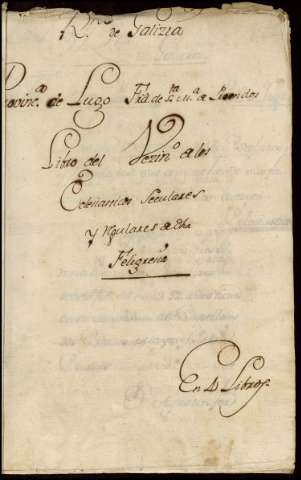 R.no de Galizia
Provinc.a de Lugo Frā de S.ta M.a de
Libro del Vezin.o de los
Eclesiasticos Seculares
y Regulares de dha
Feligresia
En 4 Libros